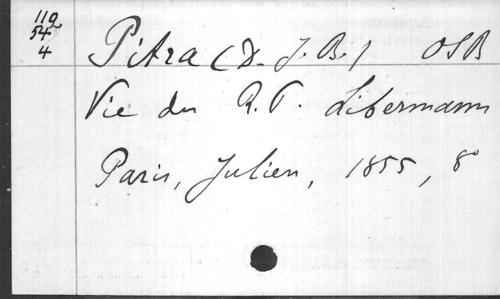 119
54
4
Pitra (D. J. B.) OSB
Vie du R. P. Libermann
Paris, Julien, 1855, 8°